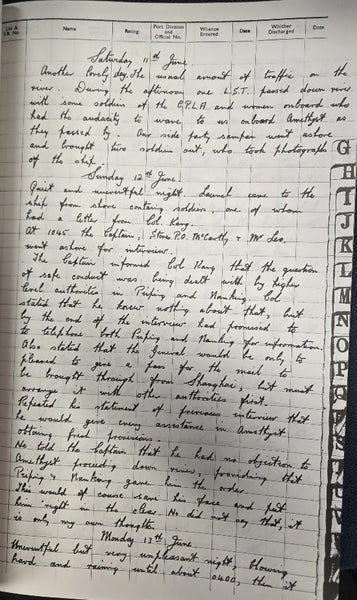 List & S.B. No.
Name
Rating
Port Division and Official No.
Whence Entered
Date
Whither Discharged
Date
Saturday 11th June.
Another lovely day. The usual amount of traffic on the
river. During the afternoon one L.S.T. passed down river
with some soldiers of the C.P.L.A. and women onboard who
had the audacity to wave to us onboard Amethyst as
they passed by. Our side party sampan went ashore
and brought two soldiers out, who took photographs
of the ship.
Sunday 12th June.
Quiet and uneventful night. Launch came to the
ship from shore contain soldiers, one of whom
had a letter from Col. Kang.
At 1045 the Captain, Store P.O. McCarthy & Mr Leo,
went ashore for interview.
The Captain informed Col Kang that the question
of safe conduct was being dealt with by higher
level authorities in Peiping and Nanking. Col
stated that he knew nothing about that, but
by the end of the interview had promised to
to telephone both Peiping and Nanking for information.
Also stated that the General would be only to
pleased to give a pass for the mail to
be brought through from Shanghai, but must
arrange it with other authorities first.
Repeated his statement of previous interview that
he would give every assistance in Amethyst
obtaining fresh provisions.
He told the Captain that he had no objection to
Amethyst proceeding down river, providing that
Peiping & Nanking gave him the order.
This would of course save his face and put
him right in the clear. He did not say that, it
is only my own thoughts.
Monday 13th June.
Uneventful but very unpleasant night, blowing
hard and raining until about 0400, then it
G
H
I
J
K
L
M
N
O
P
Q
R
S
T
U
V